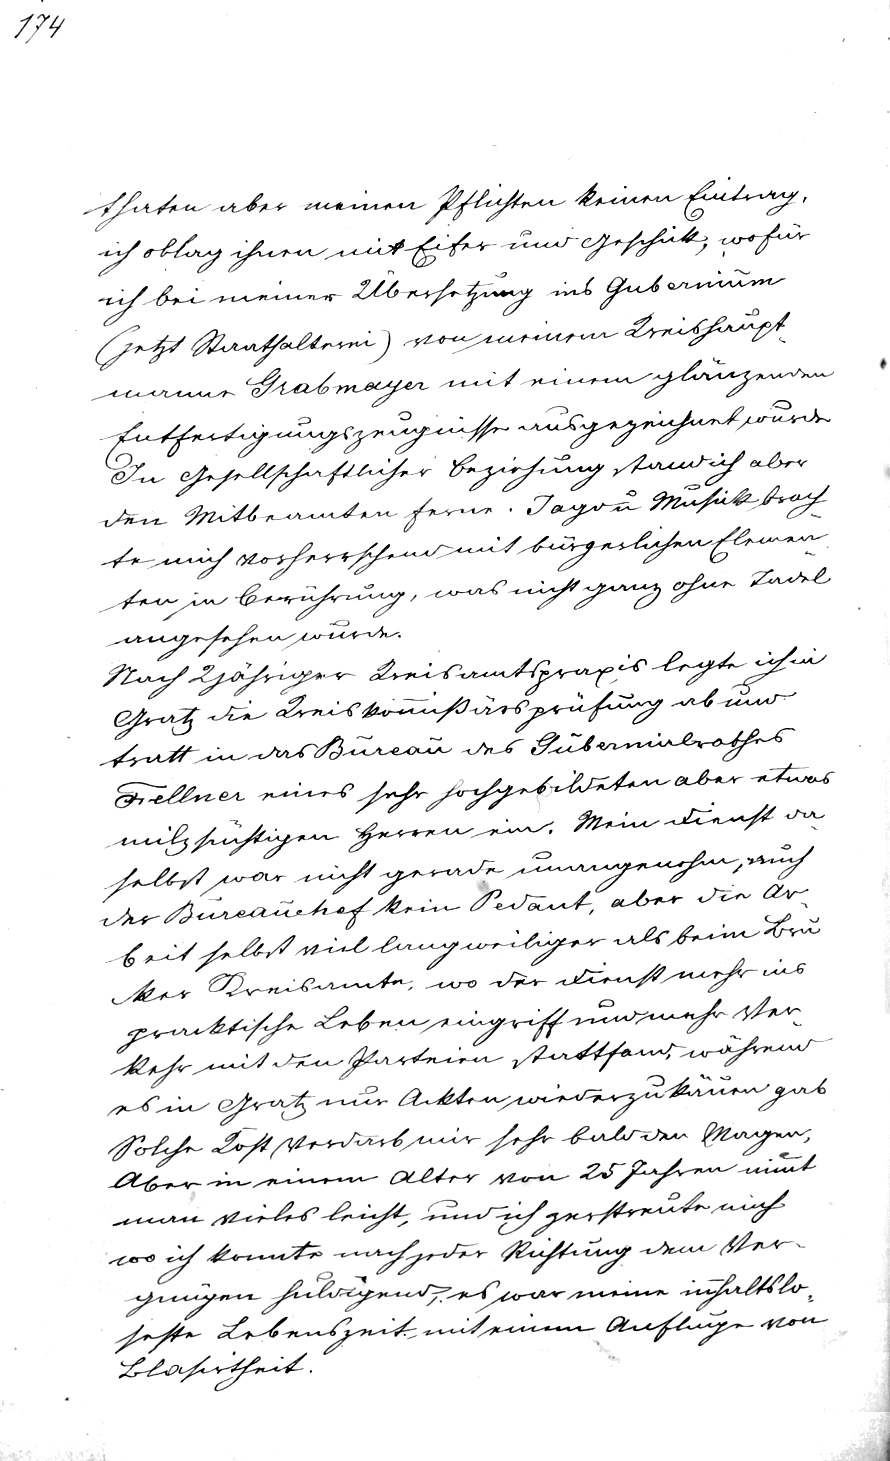 174
thaten aber meinen Pflichten keinen Eintrag,
ich oblag ihnen mit Eifer und Geschick, wofür
ich bei meiner Übersetzung ins Gubernium
(jetzt Statthalterei) von meinem Kreishaupt-
manne Grabmayer mit einem glänzenden
Entfertigungszeugnisse ausgezeichnet wurde
In Gesellschaftlicher Beziehung stand ich aber
den Mitbeamten ferne. Jagd u Musik brach-
te mich vorherrschend mit bürgerlichen Elemen-
ten in Berührung, was nicht ganz ohne Tadel
angesehen wurde.
Nach 2jähriger Kreisamtspraxis legte ich in
Gratz die Kreiskom̄ißärsprüfung ab und
tratt in das Bureau des Gubernialrathes
Fellner eines sehr hochgebildeten aber etwas
milzsüchtigen Herren ein. Mein Dienst da-
selbst war nicht gerade unangenehm, auch
der Bureauchef kein Pedant, aber die Ar-
beit selbst viel langweiliger als beim Bru
cker Kreisamte, wo der Dienst mehr ins
practische Leben eingriff und mehr Ver-
kehr mit den Parteien stattfand, während
es in Gratz nur Ackten wiederzukäuen gab
Solche Kost verdarb mir sehr bald den Magen,
Aber in einem Alter von 25 Jahren nim̄t
man vieles leicht, und ich zerstreute mich
wo ich konnte nach jeder Richtung dem Ver-
gnügen huldigend, es war meine inhaltslo-
seste Lebenszeit mit einem Anfluge von
Blasirtheit.